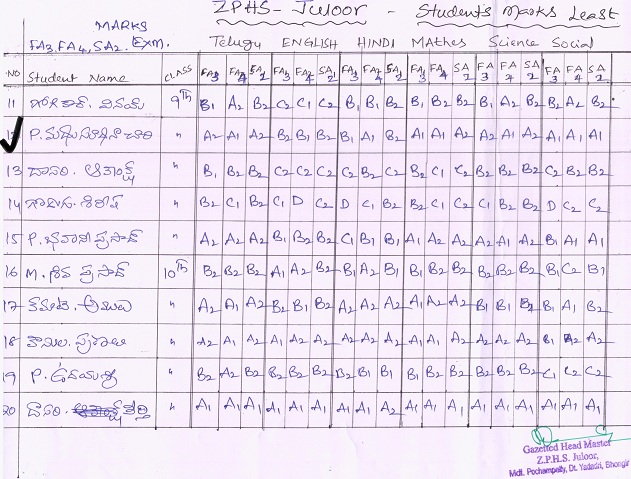 ZPHS- Juloor - Students Marks Least
MARKS
FA3, FA4, SA2. EXM. Telugu ENGLISH HINDI MAthes Science Social
NO Student Name CLASS FA3 FA4 SA2 FA3 FA4 SA2 FA3 FA4 SA2 FA3 FA4 SA2 FA3 FA4 SA2 FA3 FA4 SA2
11 వినయ్ 9th B1 A2 B2 C2 C1 C2 B1 B1 B2 B2 B2 B2 B1 A2 B2 B2 A2 B2
12 P. మధుసూధనాచారి " A2 A1 A2 B2 B1 B2 B1 A1 B2 A1 A1 A1 A2 A2 A2 A1 A1 A1
13 దాసరి. " B1 B2 B2 C2 C2 C2 C2 B2 C2 B2 C1 C2 B2 B2 B2 C2 B2 B2
14 శిరీష " B2 C1 B2 C1 D C2 D C1 B2 B2 C1 C2 C1 B2 B2 D C2 C2
15 P. భవాని ప్రసాద్ " A2 A2 A2 B1 B2 B2 C1 B1 B1 A1 A2 A2 A2 A2 A2 B1 A1 A1
16 M. శివ ప్రసాద్ 10th B2 B2 B2 A1 A2 B2 B1 A2 B1 B2 B2 B2 B2 B2 B2 B1 C2 B1
17 " A2 A1 A2 B2 B1 B2 A2 A2 A2 A1 A2 A2 B1 B1 B2 B1 A1 B2
18 " A2 A1 A2 A2 A2 A2 A2 A1 A2 A1 A1 A2 A2 A2 A2 B1 A2 A2
19 P. ఉదయశ్రీ " B2 A2 B2 B2 B2 B2 B2 B1 B1 B1 B2 B2 B2 B2 B2 C1 C2 C2
20 దాసరి. కీర్తి " A1 A1 A1 A1 A1 A1 A1 A1 A2 A1 A1 A1 A1 A1 A1 A1 A1 A1
Gazetted Head Master
Z.P.H.S. Juloor,
Mdl. Pochampally, Dt. Yadadri, Bhongir